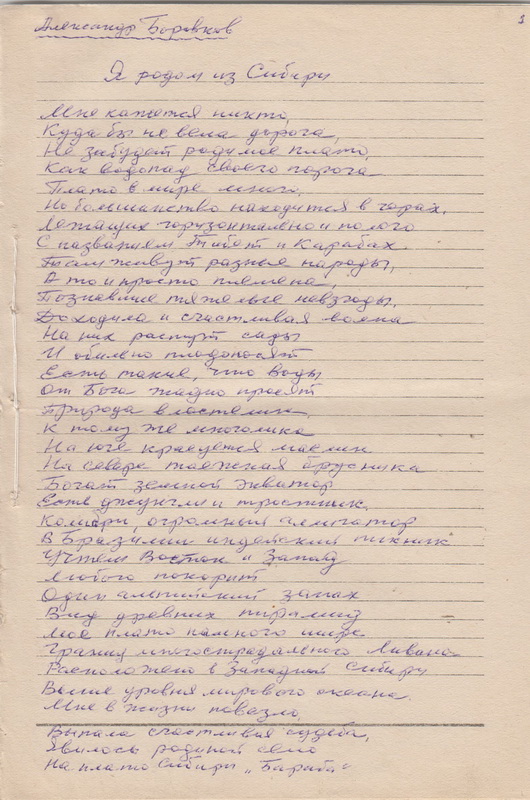 1
Александр Боровков
Я родом из Сибири
Мне кажется никто,
Куда бы не вела дорога,
Не забудет родимое плато,
Как водопад своего порога
Плато в мире много,
Но большинство находится в горах,
Лежащих горизонтально и полого
С названием Тибет и Карабах.
Там живут разные народы,
А то и просто племена,
Познавшие тяжелые невзгоды,
Доходила и счастливая волна
На них растут сады
И обильно плодоносят
Есть такие, что воды
От Бога жадно просят
Природа властелин
К тому же многолика
На юге красуется маслин
На севере таежная брусника
Богат земной экватор
Есть джунгли и тростник
Комары, огромный аллигатор
В Бразилии индейский пикник
Учтем Восток и Запад
Любого покорит
Один альпийский запах
Вид древних пирамид
Мое плато намного шире
Границ многострадального Ливана
Расположено в Западной Сибири
Выше уровня мирового океана.
Мне в жизни повезло,
Выпала счастливая судьба,
Явилось родиной село
На плато Сибири „Бараба"